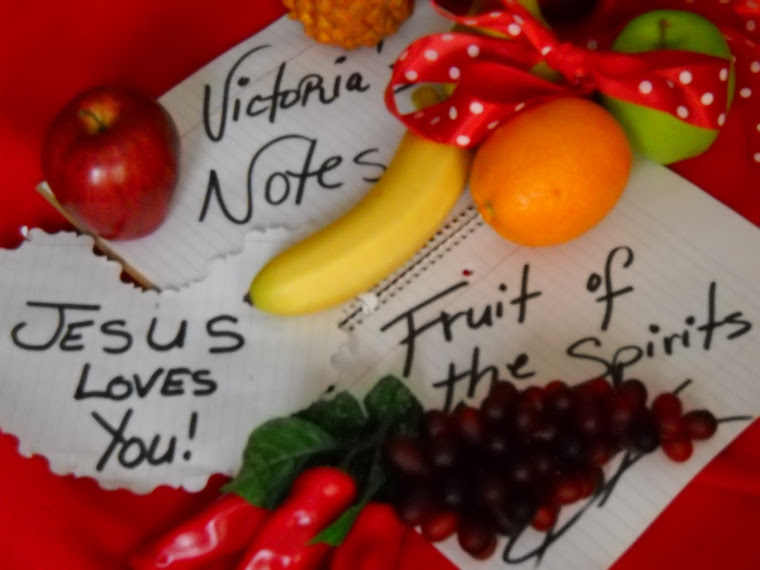 Victoria'
Notes
JESUS
LOVES
You!
Fruit of
the Spirits